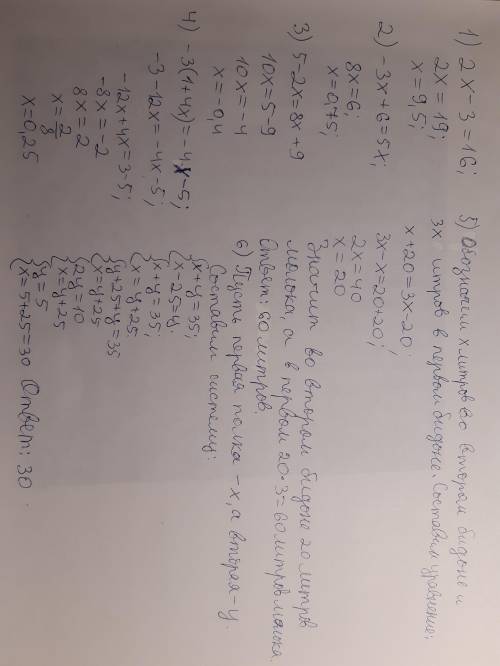 1) 2x-3=16;
2x=19;
x=9,5;
2) -3x+6=5x;
8x=6;
x=0,75;
3) 5-2x=8x+9
10x=5-9
10x=-4
x=-0,4
4) -3(1+4x)=-4x-5;
-3-12x=-4x-5;
-12x+4x=3-5;
-8x=-2
8x=2
x=2/8
x=0,25
5) Обозначим x литров во втором бидоне и
3x литров в первом бидоне. Составим уравнение:
x+20=3x-20;
3x-x=20+20;
2x=40
x=20
Значит во втором бидоне 20 литров
молока а в первом 20·3=60 литров молока.
Ответ: 60 литров.
6) Пусть первая полка - x, а вторая - y.
Составим систему:
{x+y=35;
{x-25=y.
{x+y=35;
{x=y+25.
{y+25+y=35
{x=y+25
{2y=10
{x=y+25
{y=5
{x=5+25=30 Ответ: 30